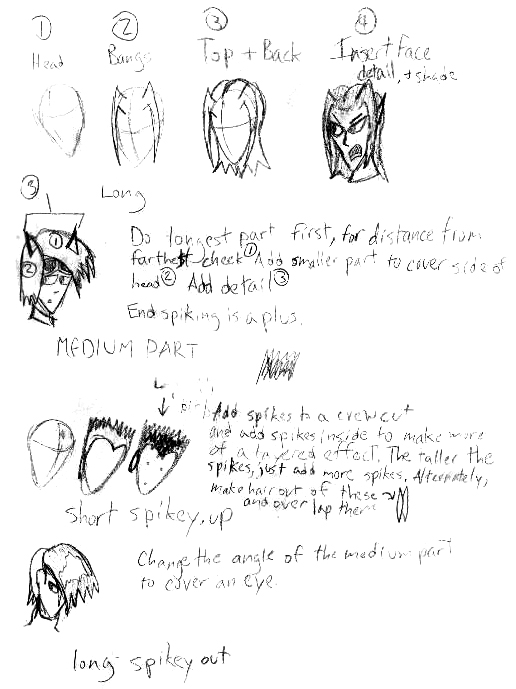 ① ② ③ ④
Head Bangs Top + Back Insert face
detail, + shade
③
Long
① ②
Do longest part first, for distance from
farthest cheek① Add smaller part to cover side of
head② Add detail③
End spiking is a plus.
MEDIUM PART
Add spikes to a crewcut
and add spikes inside to make more
of a layered effect. The taller the
spikes, just add more spikes. Alternately,
make hair out of these
and over lap them
short spikey, up
Change the angle of the medium part
to cover an eye.
long spikey out